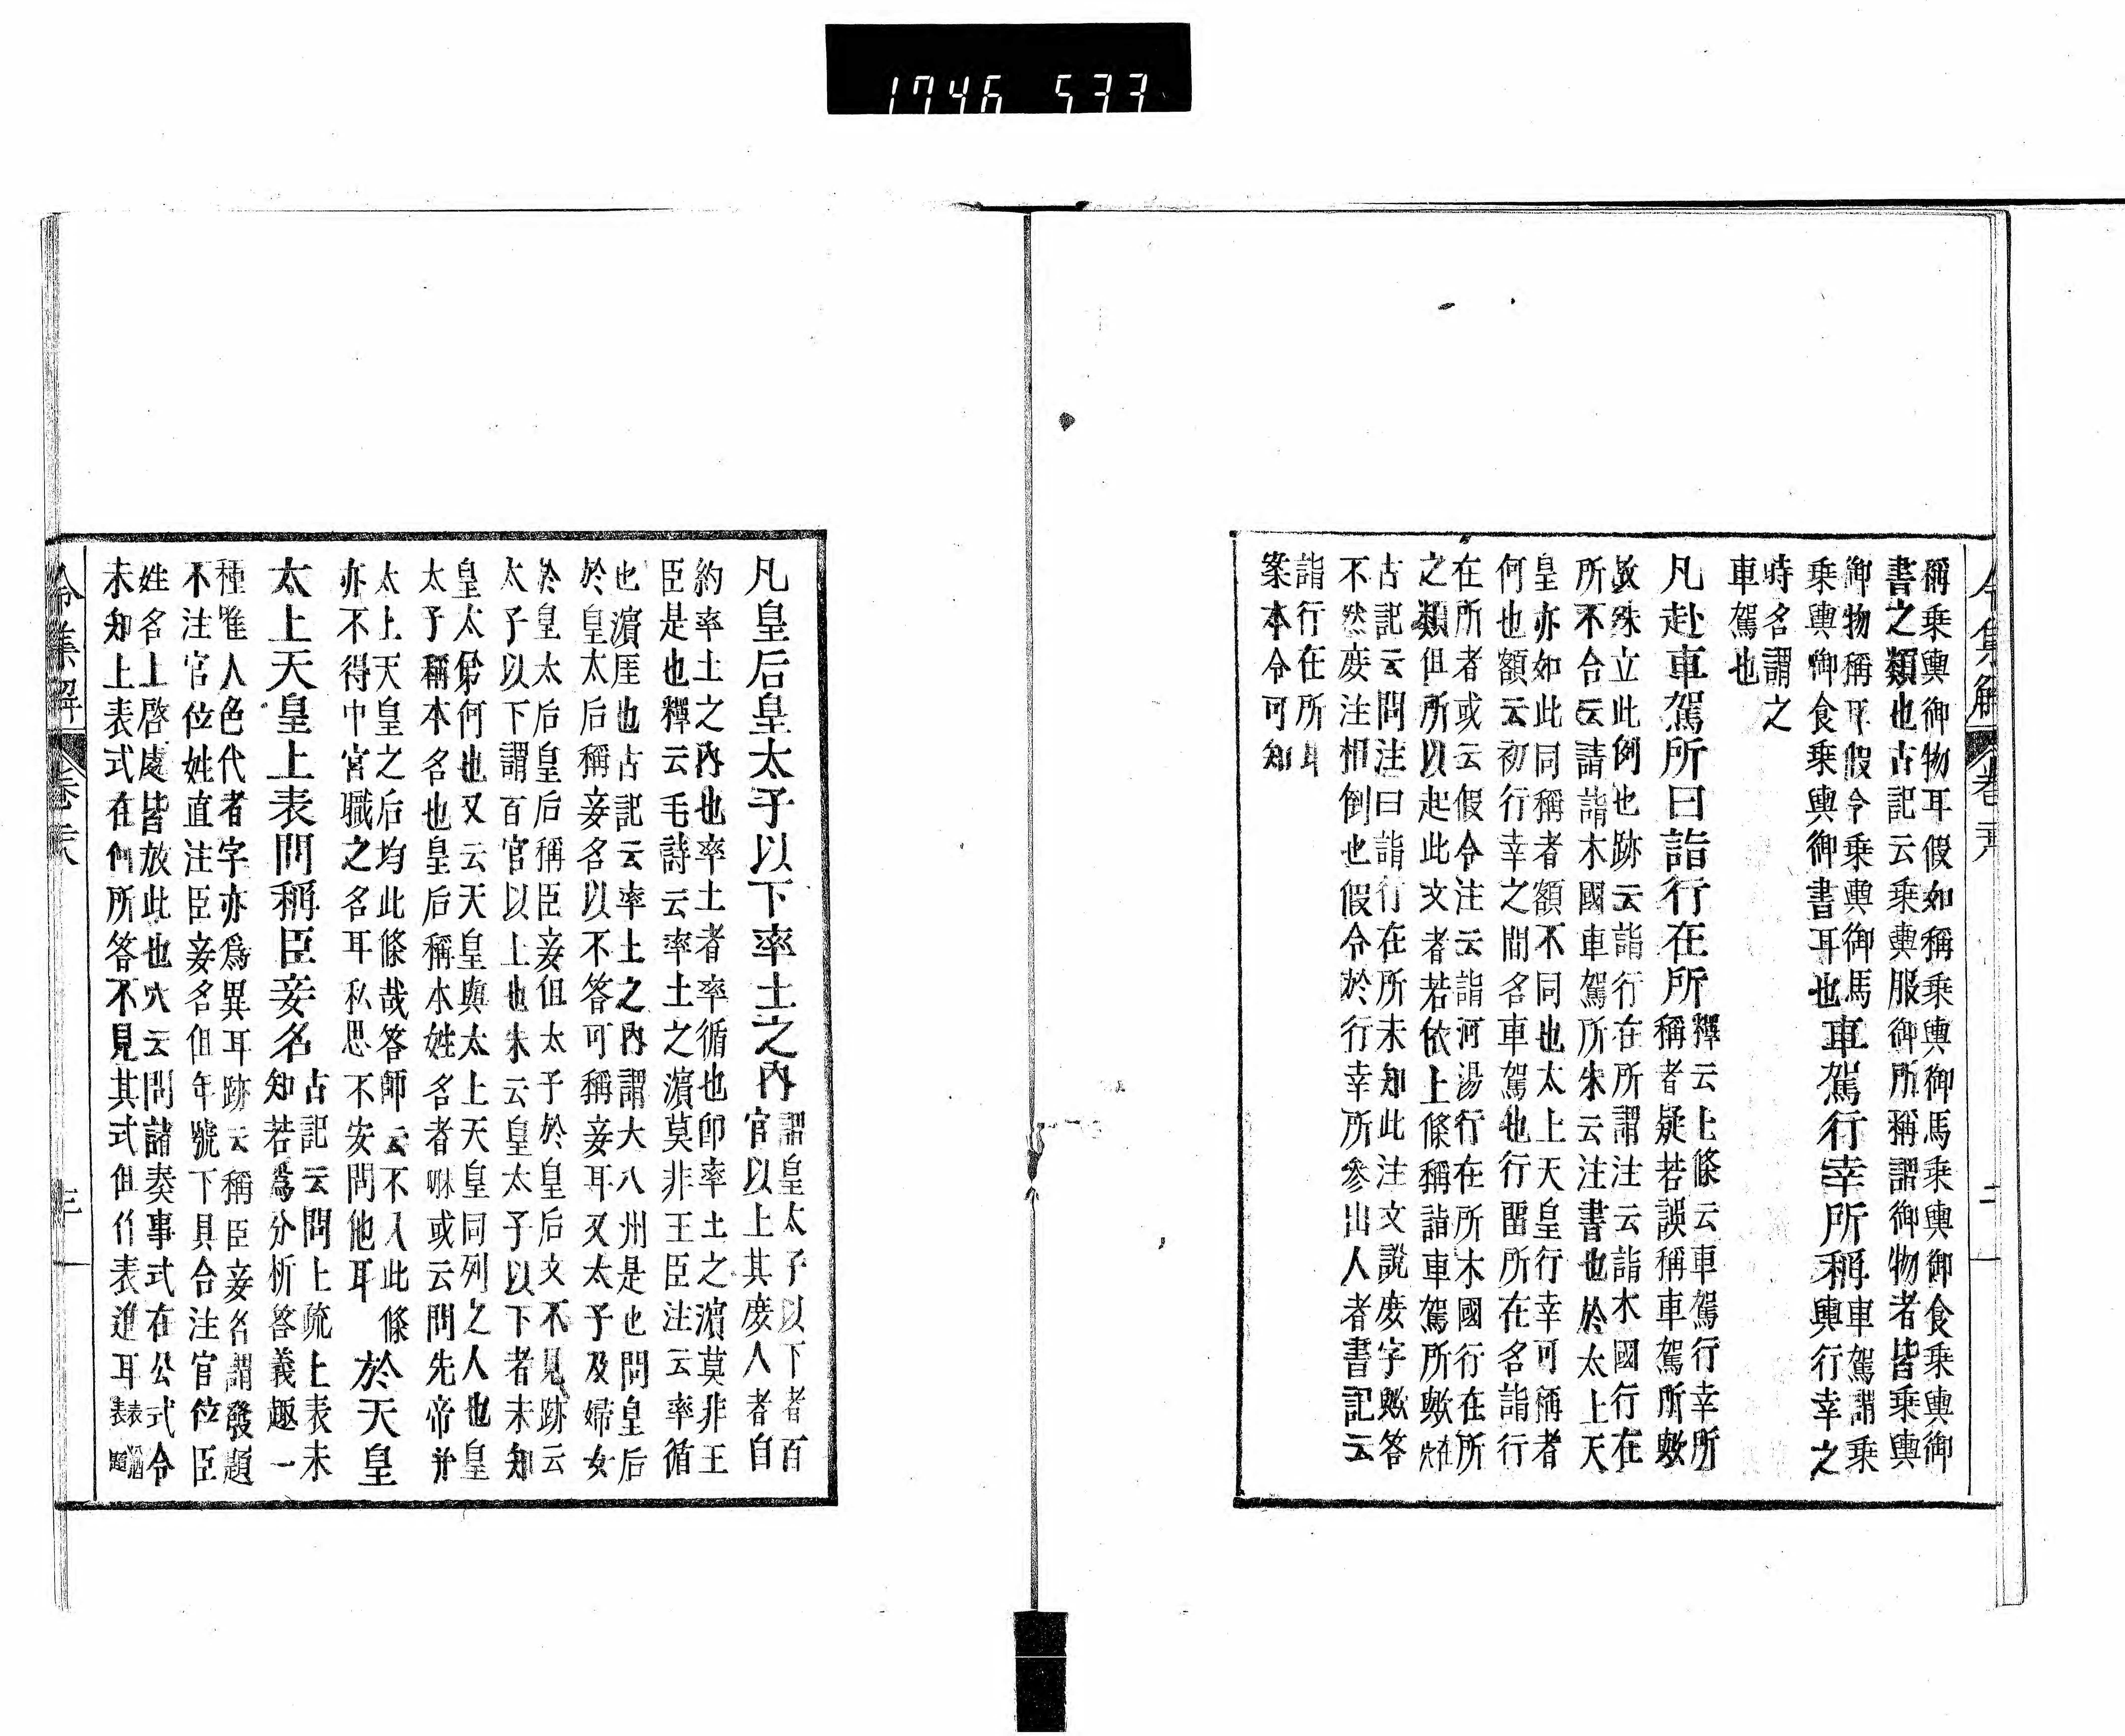 1746 533
令集解 卷二十八 二
稱乗輿御物耳假如稱乗輿御馬乗輿御食乗輿御
書之類也古記云乗輿服御所稱謂御物者皆乗輿
御物稱耳假令乗輿御馬
乗輿御食乗輿御書耳也車駕行幸所稱車駕謂乗
輿行幸之
時名謂之
車駕也
凡赴車駕所曰詣行在所釋云上條云車駕行幸所
稱者疑若誤稱車駕所歟
故殊立此例也跡云詣行在所謂注云詣木國行在
所不合云請詣木國車駕所朱云注書也於太上天
皇亦如此同稱者額不同也太上天皇行幸可稱者
何也額云初行幸之間名車駕也行留所在名詣行
在所者或云假令注云詣河湯行在所木國行在所
之類但所以起此文者若依上條稱詣車駕所歟
古記云問注曰詣行在所未知此注文說庋字歟答
不然庋注相倒也假令於行幸所參出人者書記云
詣行在所耳
案本令可知
凡皇后皇太子以下率土之內謂皇太子以下者百
官以上其庋人者自
約率土之內也率土者率循也卽率土之濵莫非王
臣是也釋云毛詩云率土之濵莫非王臣注云率循
也濵厓也古記云率土之內謂大八州是也問皇后
於皇太后稱妾名以不答可稱妾耳又太子及婦女
於皇太后皇后稱臣妾但太子於皇后文不見跡云
太子以下謂百官以上也朱云皇太子以下者未知
皇太弟何也又云天皇與太上天皇同列之人也皇
太子稱本名也皇后稱本姓名者啉或云問先帝并
太上天皇之后均此條哉答師云不入此條
亦不得中宮職之名耳私思不安問他耳 於天皇
太上天皇上表問稱臣妾名古記云問上䟽上表未
知若爲分析答義趣一
種唯人色代者字亦爲異耳跡云稱臣妾名謂發題
不注官位姓直注臣妾名但年號下具合注官位臣
姓名上啓處皆放此也穴云問諸奏事式在公式令
未知上表式在何所答不見其式但作表進耳
令集解 卷二十八 三